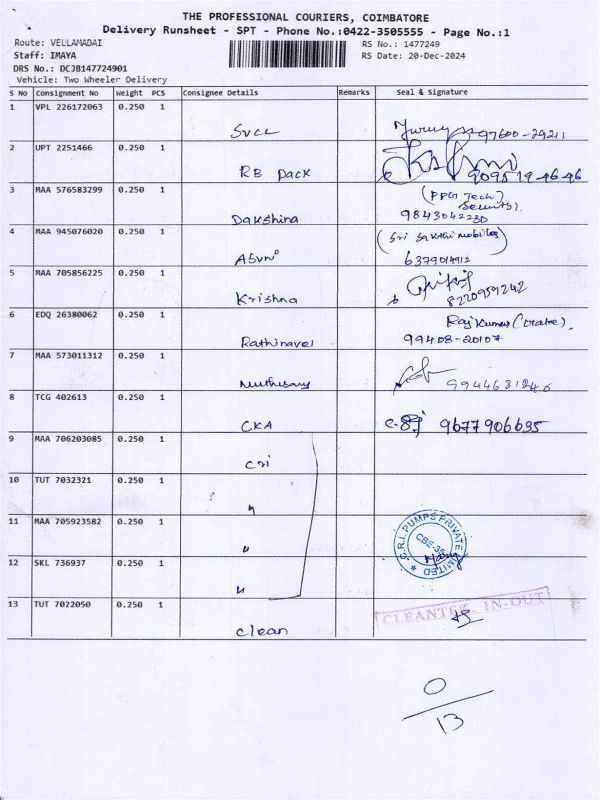 THE PROFESSIONAL COURIERS, COIMBATORE
Delivery Runsheet - SPT - Phone No.:0422-3505555 - Page No.:1
Route: VELLAMADAI
RS No.: 1477249
Staff: IMAYA
RS Date: 20-Dec-2024
DRS No.: DCJB147724901
Vehicle: Two Wheeler Delivery
S No Consignment No Weight PCS Consignee Details Remarks Seal & Signature
1 VPL 226172063 0.250 1
SVCL 97600-29211
2 UPT 2251466 0.250 1
RB pack 909519-46-46
3 MAA 576583299 0.250 1
(PPG Tech)
Security.
Dakshina 9843042230
4 MAA 945076020 0.250 1
(Sri Sakthi mobiles)
6379014912
5 MAA 705856225 0.250 1
Krishna 82209591242
6 EDQ 26380062 0.250 1
Raj Kumar
Rathinavel 99408-2010*
7 MAA 573011312 0.250 1
Muthusamy 9944681246
8 TCG 402613 0.250 1
CKA 9677906635
9 MAA 706203085 0.250 1
CRI
10 TUT 7032321 0.250 1
"
11 MAA 705923582 0.250 1
"
C.R.I. PUMPS PRIVATE LIMITED
CBE-35
12 SKL 736937 0.250 1
"
13 TUT 7022050 0.250 1
CLEANTEK IN-OUT
clean
0
13